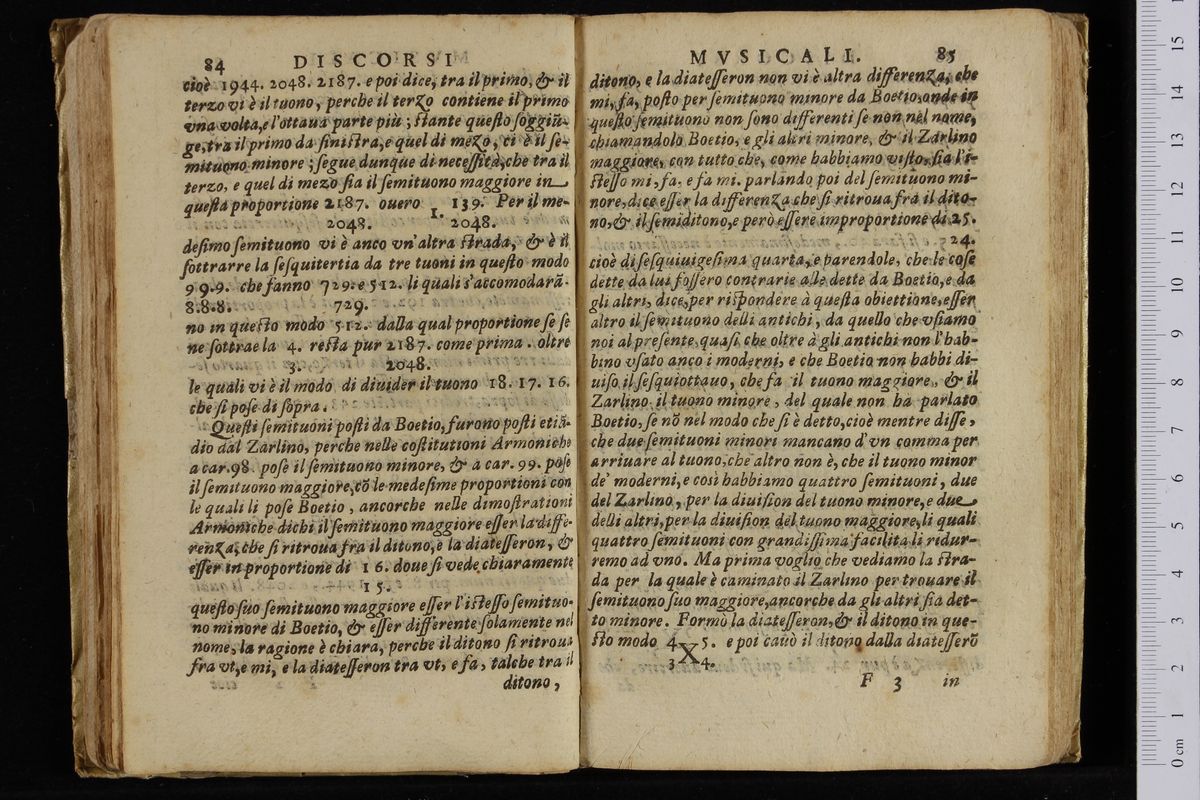 84 DISCORSI
cioè 1944. 2048. 2187. e poi dice, tra il primo, & il
terzo vi è il tuono, perche il terzo contiene il primo
vna volta, e l'ottaua parte più; ſtante queſto ſoggiũ-
ge, tra il primo da ſiniſtra, e quel di mezo, ci è il ſe-
mituono minore; ſegue dunque di neceſſità, che tra il
terzo, e quel di mezo ſia il ſemituono maggiore in
queſta proportione 2187. ouero 1. 139. Per il me-
2048. 2048.
deſimo ſemituono vi è anco vn'altra ſtrada, & è il
ſottrarre la ſeſquitertia da tre tuoni in queſto modo
9.9.9. che fanno 729. e 512. li quali s'accomodarã-
8.8.8. 729.
no in queſto modo 512. dalla qual proportione ſe ſe
ne ſottrae la 4. reſta pur 2187. come prima. oltre
3. 2048.
le quali vi è il modo di diuider il tuono 18. 17. 16.
che ſi poſe di ſopra.
Queſti ſemituoni poſti da Boetio, furono poſti etiã-
dio dal Zarlino, perche nelle coſtitutioni Armoniche
a car. 98. poſe il ſemituono minore, & a car. 99. poſe
il ſemituono maggiore, cõ le medeſime proportioni con
le quali li poſe Boetio, ancorche nelle dimoſtrationi
Armoniche dichi il ſemituono maggiore eſſer la diffe-
renza, che ſi ritroua fra il ditono, e la diateſſeron, &
eſſer in proportione di 16. doue ſi vede chiaramente
15.
queſto ſuo ſemituono maggiore eſſer l'iſteſſo ſemituo-
no minore di Boetio, & eſſer differente ſolamente nel
nome, la ragione è chiara, perche il ditono ſi ritroua
fra vt, e mi, e la diateſſeron tra vt, e fa, talche tra il
ditono,
MVSICALI. 85
ditono, e la diateſſeron non vi è altra differenza, che
mi, fa, poſto per ſemituono minore da Boetio, onde in
queſto ſemituono non ſono differenti ſe non nel nome,
chiamandolo Boetio, e gli altri minore, & il Zarlino
maggiore, con tutto che, come habbiamo viſto, ſia l'i-
ſteſſo mi, fa, e fa mi. parlando poi del ſemituono mi-
nore, dice eſſer la differenza che ſi ritroua fra il dito-
no, & il ſemiditono, e però eſſere improportione di 25.
24.
cioè di ſeſquiuigeſima quarta, e parendole, che le coſe
dette da lui foſſero contrarie alle dette da Boetio, e da
gli altri, dice, per riſpondere à queſta obiettione, eſſer
altro il ſemituono delli antichi, da quello che vſiamo
noi al preſente, quaſi che oltre à gli antichi non l'hab-
bino vſato anco i moderni, e che Boetio non habbi di-
uiſo il ſeſquiottauo, che fa il tuono maggiore, & il
Zarlino il tuono minore, del quale non ha parlato
Boetio, ſe nõ nel modo che ſi è detto, cioè mentre diſſe,
che due ſemituoni minori mancano d'vn comma per
arriuare al tuono, che altro non è, che il tuono minor
de' moderni, e così habbiamo quattro ſemituoni, due
del Zarlino, per la diuiſion del tuono minore, e due
delli altri, per la diuiſion del tuono maggiore, li quali
quattro ſemituoni con grandiſſima facilità li ridur-
remo ad vno. Ma prima voglio che vediamo la ſtra-
da per la quale è caminato il Zarlino per trouare il
ſemituono ſuo maggiore, ancorche da gli altri ſia det-
to minore. Formò la diateſſeron, & il ditono in que-
ſto modo 4 X 5. e poi cauò il ditono dalla diateſſerõ
3 4.
F 3 in